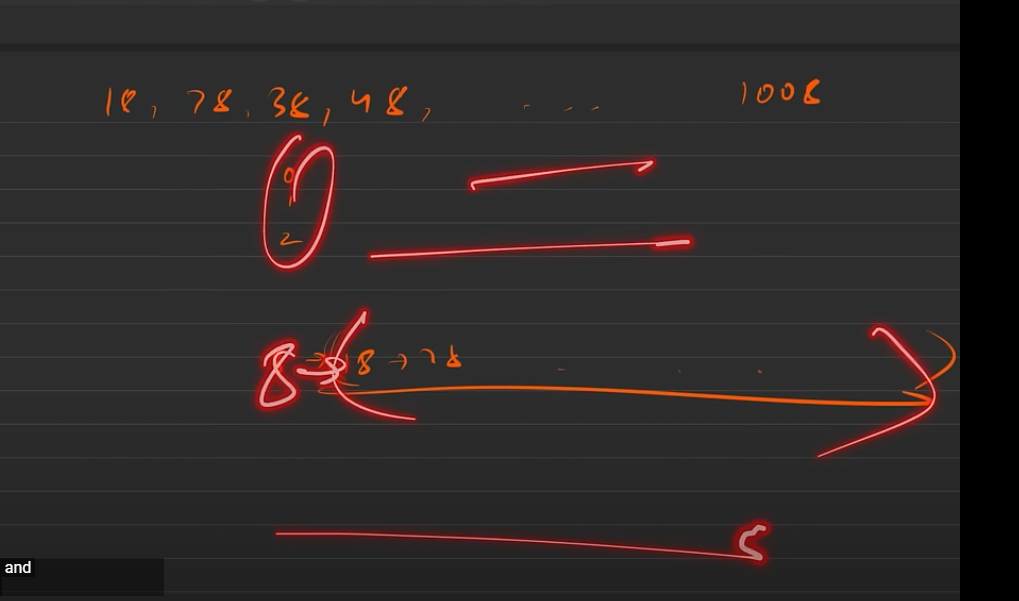 18, 28, 38, 48, . . . 1008
0
1
2
8 → 18 → 28 . . .
and